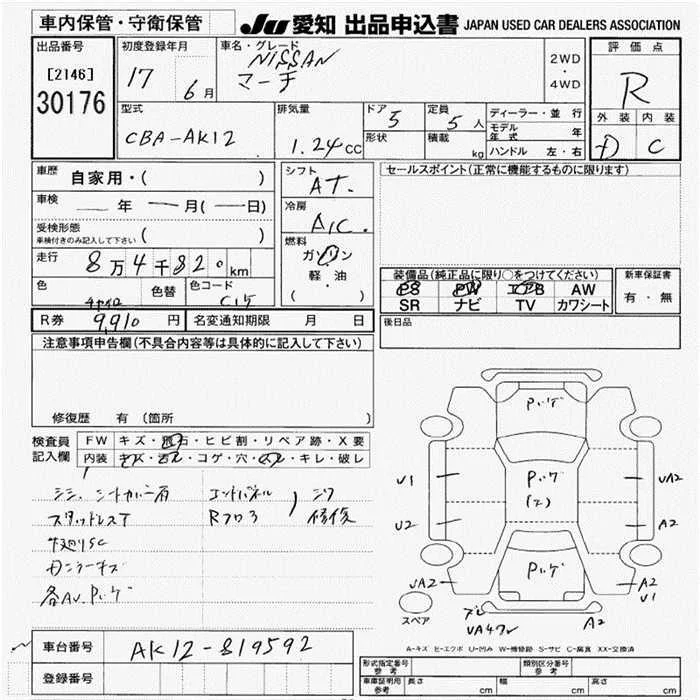 車内保管・守衛保管 JU 愛知 出品申込書 JAPAN USED CAR DEALERS ASSOCIATION
出品番号
[2146]
30176
初度登録年月
17 6月
車名・グレード
NISSAN
マーチ
2WD
・
4WD
評価点
R
外装 内装
D C
型式
CBA-AK12
排気量
1.24cc
ドア 5
形状
定員 5人
積載 kg
ディーラー・並行
モデル年式 年
ハンドル 左・右
車歴 自家用・( )
車検 年 月( 日)
受検形態
車検付きのみ記入して下さい ( )
走行 8万4千820km
色
色替
色コード
R券 9,910円 名変通知期限 月 日
シフト
AT.
冷房
A/C.
燃料
ガソリン
軽・油
( )
セールスポイント(正常に機能するものに限ります)
装備品(純正品に限り○をつけてください)
PS PW エアB AW
SR ナビ TV カワシート
新車保証書
有・無
後日品
注意事項申告欄(不具合内容等は具体的に記入して下さい)
修復歴 有(箇所 )
検査員
記入欄
FW キズ・飛石・ヒビ割・リペア跡・X要
内装 キズ・汚れ・コゲ・穴・スレ・キレ・破レ
スタッドレスT
修復
Pいゲ
Pいゲ
(2)
Pいゲ
U1
U2
UA2
UA2
A2
A2
U1
A2
スペア
A-キズ E-エクボ U-凹み W-補修跡 S-サビ C-腐蝕 XX-交換済
車台番号 AK12-819592
登録番号
形式指定番号
参考
類別区分番号
参考
車庫証明用
参考
長さ cm 幅 cm 高さ cm